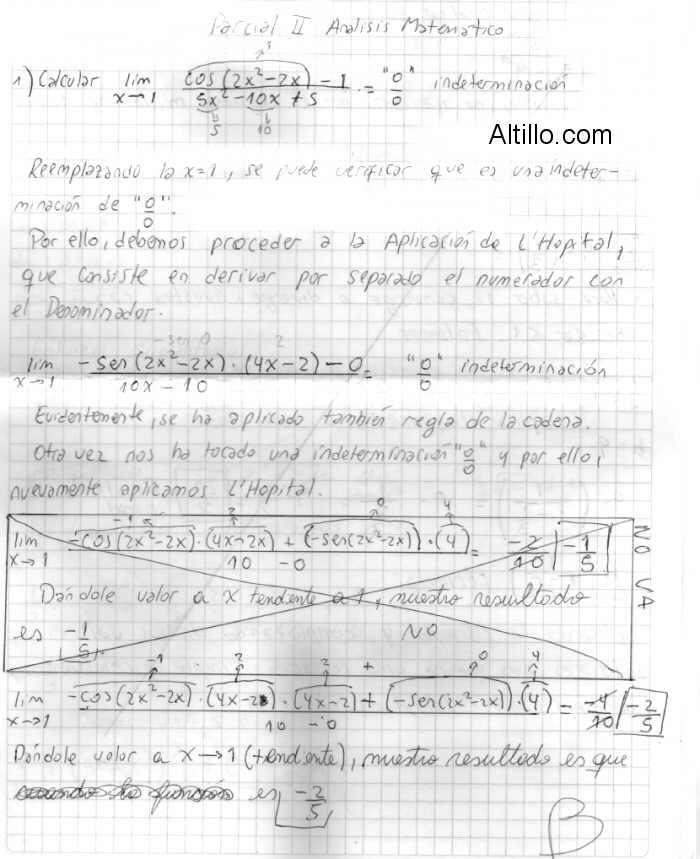 Parcial II Analisis Matematico
1) Calcular lim x→1 (cos(2x²-2x) - 1)/(5x² - 10x + 5) = "0/0" indeterminación
1
5 10
Altillo.com
Reemplazando la x=1, se puede verificar que es una indeter-
minación de "0/0".
Por ello, debemos proceder a la Aplicación de L'Hopital,
que consiste en derivar por separado el numerador con
el Denominador.
-sen 0 2
lim x→1 (-sen(2x²-2x)·(4x-2) - 0)/(10x - 10) = "0/0" indeterminación
Evidentemente, se ha aplicado también regla de la cadena.
Otra vez nos ha tocado una indeterminación "0/0" y por ello,
nuevamente aplicamos L'Hopital.
-1 2 0 4
lim x→1 (-cos(2x²-2x)·(4x-2x) + (-sen(2x²-2x))·(4))/(10 - 0) = -2/10 | -1/5
NO VA
Dándole valor a x tendente a 1, nuestro resultado
es -1/5. NO
-1 · 2 2 + 0 4
lim x→1 (-cos(2x²-2x)·(4x-2)·(4x-2) + (-sen(2x²-2x))·(4))/(10 - 0) = -4/10 | -2/5
Dándole valor a x→1 (tendente), nuestro resultado es que
es -2/5
B